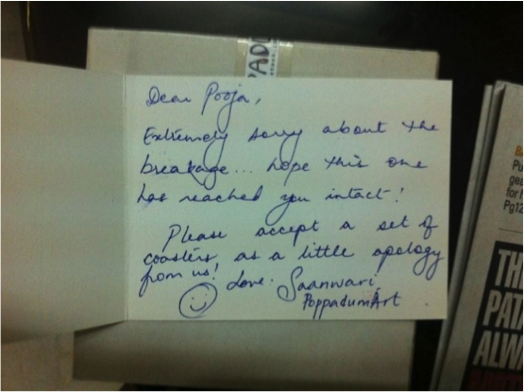 PADD
Dear Pooja,
Extremely sorry about the
breakage... hope this one
has reached you intact!
Please accept a set of
coasters as a little apology
from us!
Love. Saanwari
PoppadumArt.
Pu
gea
for h
Pg12
TH
PAT
ALWA